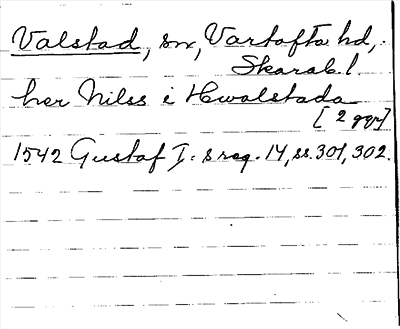 Valstad, sn, Vartofta hd,
Skarab. l.
her Nilss i Hwalstada
[2 ggr]
1542 Gustaf I: s reg. 14, ss. 301, 302.